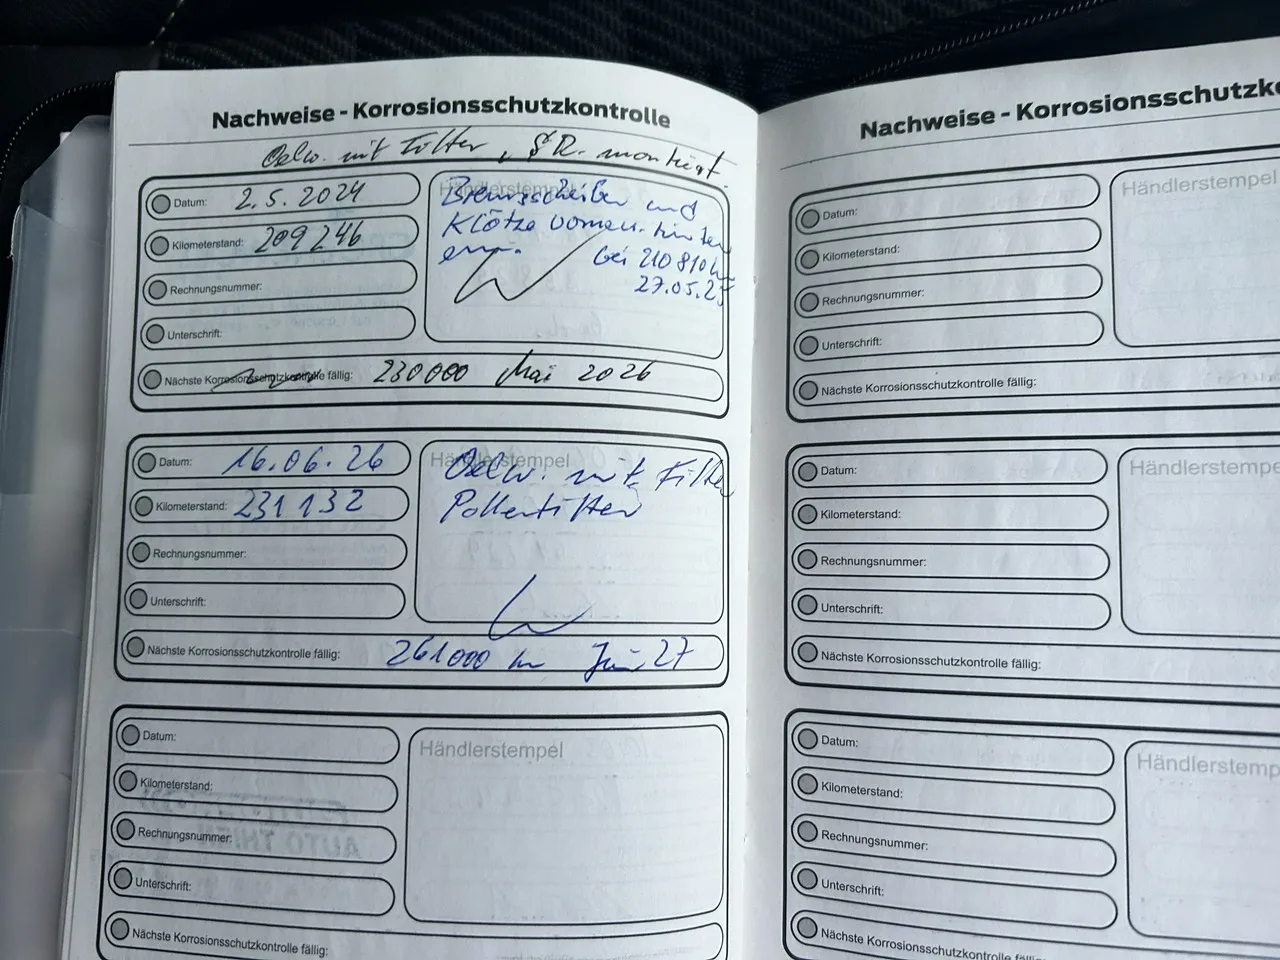 Nachweise - Korrosionsschutzkontrolle
Oelw. mit Filter, SR. montiert.
Datum: 2.5.2024
Kilometerstand: 209246
Rechnungsnummer:
Unterschrift:
Händlerstempel
Bremsscheiben und
Klötze vornen. hinten
ern.
bei 210810km
27.05.25
Nächste Korrosionsschutzkontrolle fällig: 230000 Mai 2026
Datum: 16.06.26
Kilometerstand: 231132
Rechnungsnummer:
Unterschrift:
Händlerstempel
Oelw. mit Filter
Pollenfilter
Nächste Korrosionsschutzkontrolle fällig: 261000 km Juni 27
Datum:
Kilometerstand:
Rechnungsnummer:
Unterschrift:
Händlerstempel
Nächste Korrosionsschutzkontrolle fällig:
Nachweise - Korrosionsschutzko
Datum:
Kilometerstand:
Rechnungsnummer:
Unterschrift:
Händlerstempel
Nächste Korrosionsschutzkontrolle fällig:
Datum:
Kilometerstand:
Rechnungsnummer:
Unterschrift:
Händlerstempe
Nächste Korrosionsschutzkontrolle fällig:
Datum:
Kilometerstand:
Rechnungsnummer:
Unterschrift:
Händlerstemp
Nächste Korrosionsschutzkontrolle fällig: